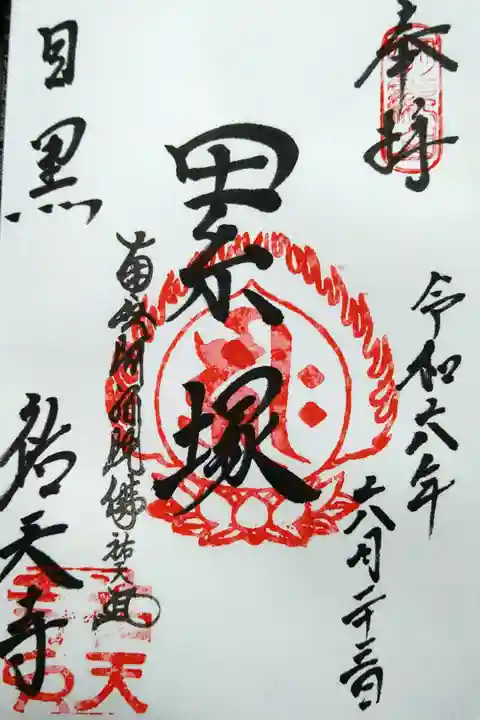 奉拝
令和六年
六月二十二日
累塚
南無阿弥陀佛 祐天
目黒
祐天寺